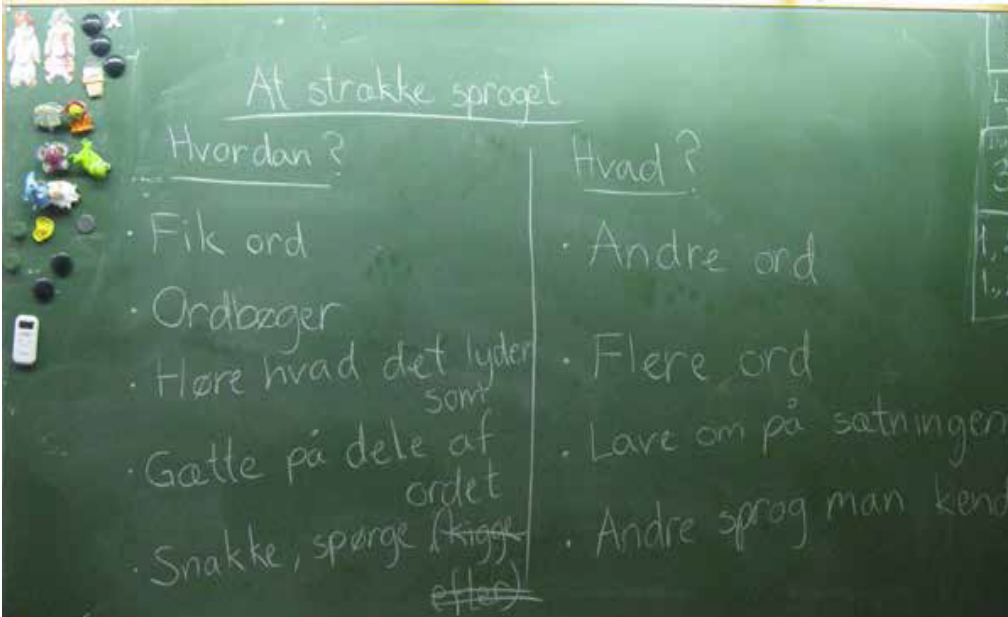 At strække sproget
Hvordan?
· Fik ord
· Ordbøger
· Høre hvad det lyder
som
· Gætte på dele af
ordet
· Snakke, spørge (kigge
efter)
Hvad?
· Andre ord
· Flere ord
· Lave om på sætningen
· Andre sprog man kend